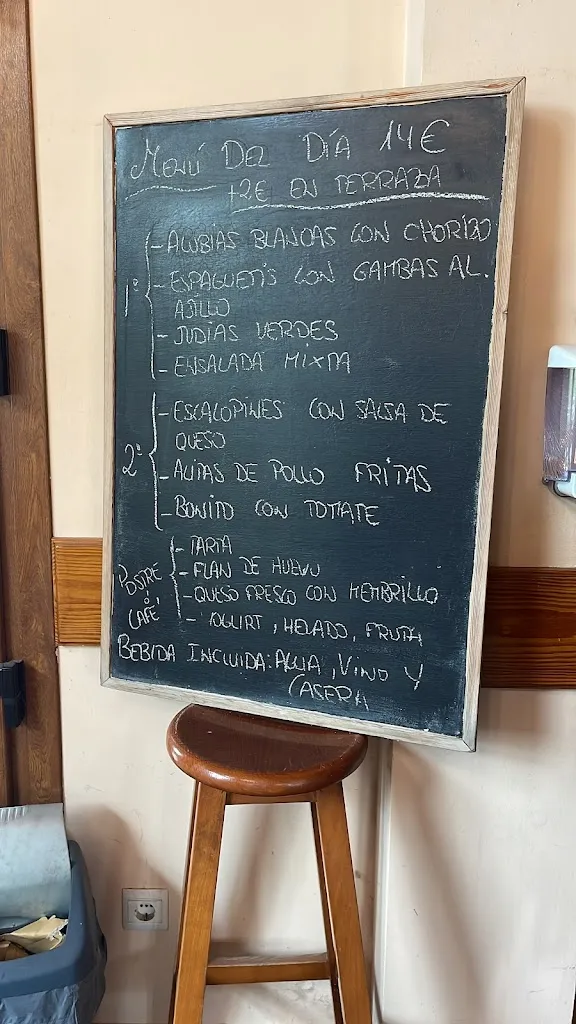 MENÚ DEL DÍA 14€
+2€ EN TERRAZA
1º
- ALUBIAS BLANCAS CON CHORIZO
- ESPAGUETIS CON GAMBAS AL
AJILLO
- JUDÍAS VERDES
- ENSALADA MIXTA
2º
- ESCALOPINES CON SALSA DE
QUESO
- ALITAS DE POLLO FRITAS
- BONITO CON TOMATE
POSTRE
Ó
CAFÉ
- TARTA
- FLAN DE HUEVO
- QUESO FRESCO CON MEMBRILLO
- YOGURT, HELADO, FRUTA
BEBIDA INCLUIDA: AGUA, VINO Y
CASERA